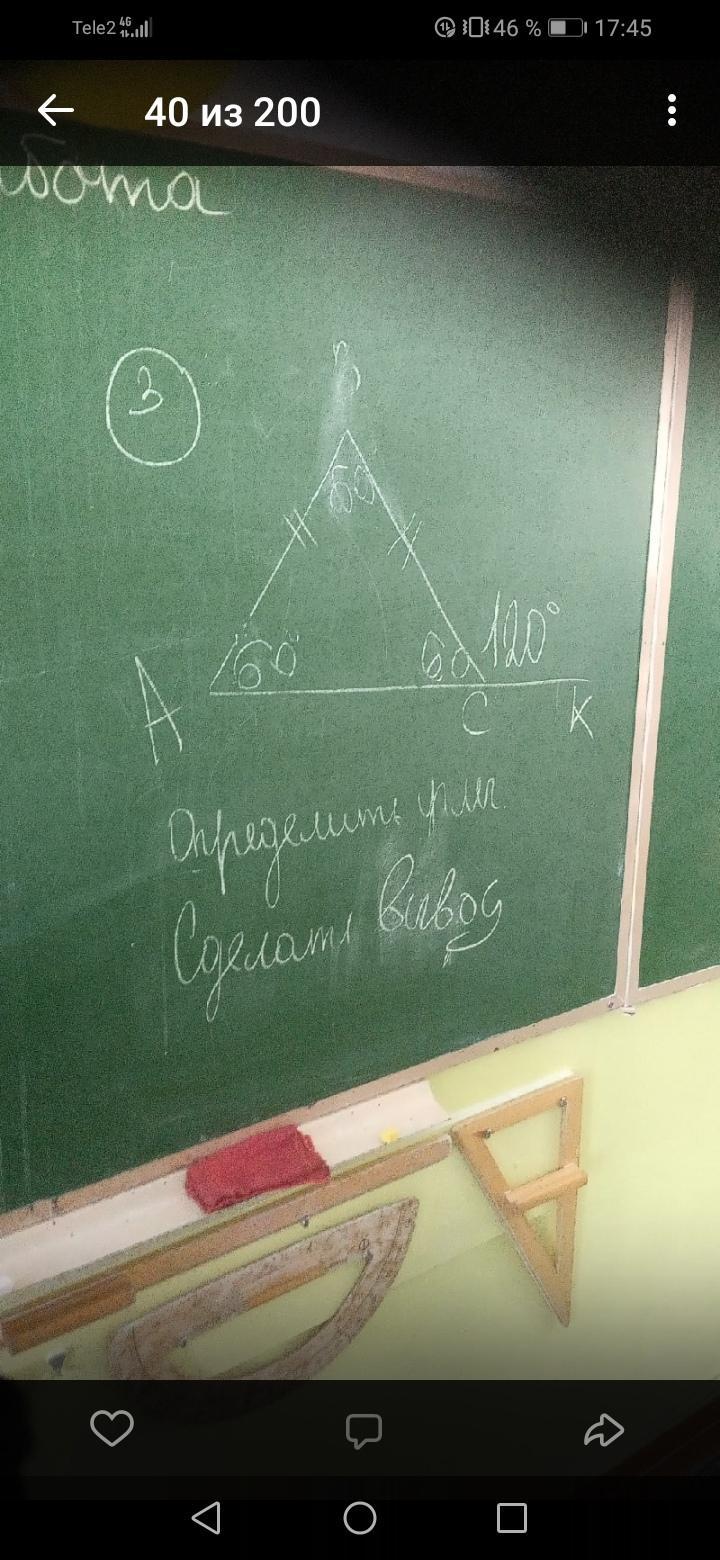 Tele2 4G 46 % 17:45
40 из 200
бота
3
B
60
60° 60 120°
A C K
Определить
Сделать вывод